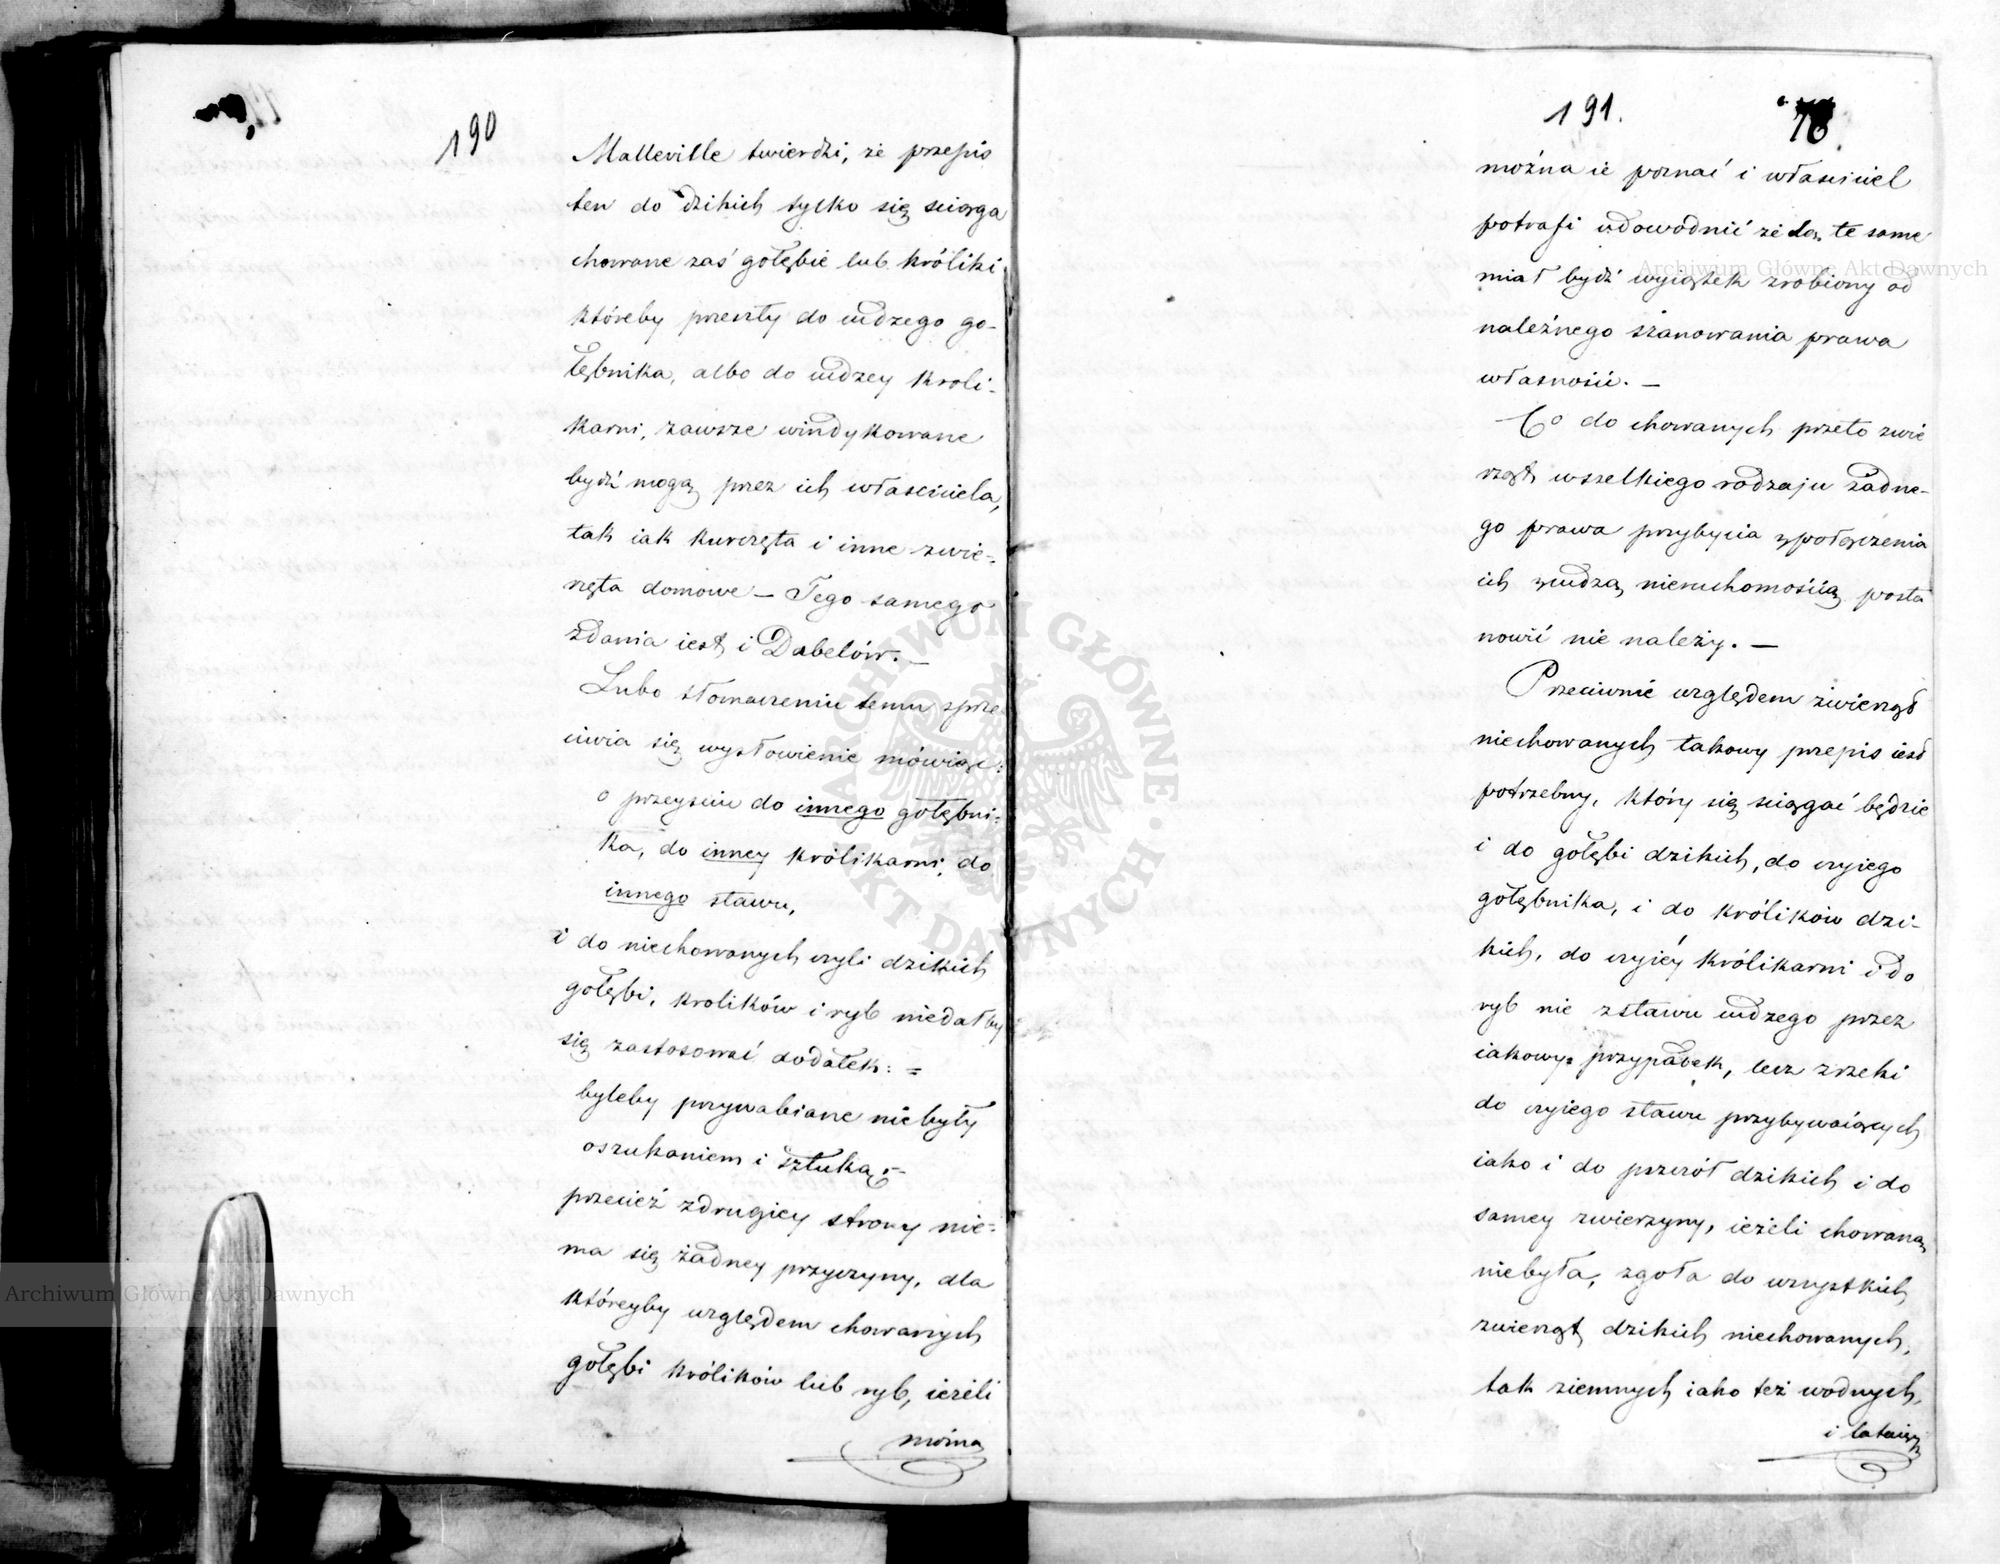 190
Malleville twierdzi, że przepis
ten do dzikich tylko się sciąga
chowane zaś gołębie lub króliki
któreby przeszły do cudzego go-
łębnika, albo do cudzey kroli-
karni, zawsze windykowane
bydź mogą przez ich własciciela,
tak iak kurczęta i inne zwie-
rzęta domowe — Tego samego
zdania iest i Dabelów. —
Lubo tłomaczeniu temu sprze
ciwia się wysłowienie mówiąc:
o przeysciu do innego gołębni-
ka, do inney królikarni, do
innego stawu,
i do niechowanych czyli dzikich
gołębi, krolików i ryb niedałby
się zastosować dodatek: =
byleby przywabiane niebyły
oszukaniem i sztuką; —
przecież zdrugiey strony nie-
ma się żadney przyczyny, dla
któreyby względem chowanych
gołębi królików lub ryb, ieżeli
można
191. 78
można ie poznać i właściciel
potrafi udowodnić że są te same
miał bydź wyiątek zrobiony od
należnego szanowania prawa
własności. —
Co do chowanych przeto zwie
rząt wszelkiego rodzaju żadne-
go prawa przybycia zpołączenia
ich zcudzą nieruchomością posta
nowić nie należy. —
Przeciwnie względem zwierząt
niechowanych takowy przepis iest
potrzebny, który się sciągać będzie
i do gołębi dzikich, do czyiego
gołębnika, i do królików dzi-
kich, do czyiéy królikarni i do
ryb nie zstawu cudzego przez
iakowy przypadek, lecz zrzeki
do czyiego stawu przybywaiących
iako i do pszczół dzikich i do
samey zwierzyny, ieżeli chowaną
niebyła, zgoła do wszystkich
zwierząt dzikich niechowanych,
tak ziemnych iako też wodnych,
i lataiąy
Archiwum Główne Akt Dawnych
Archiwum Główne Akt Dawnych
ARCHIWUM GŁÓWNE AKT DAWNYCH